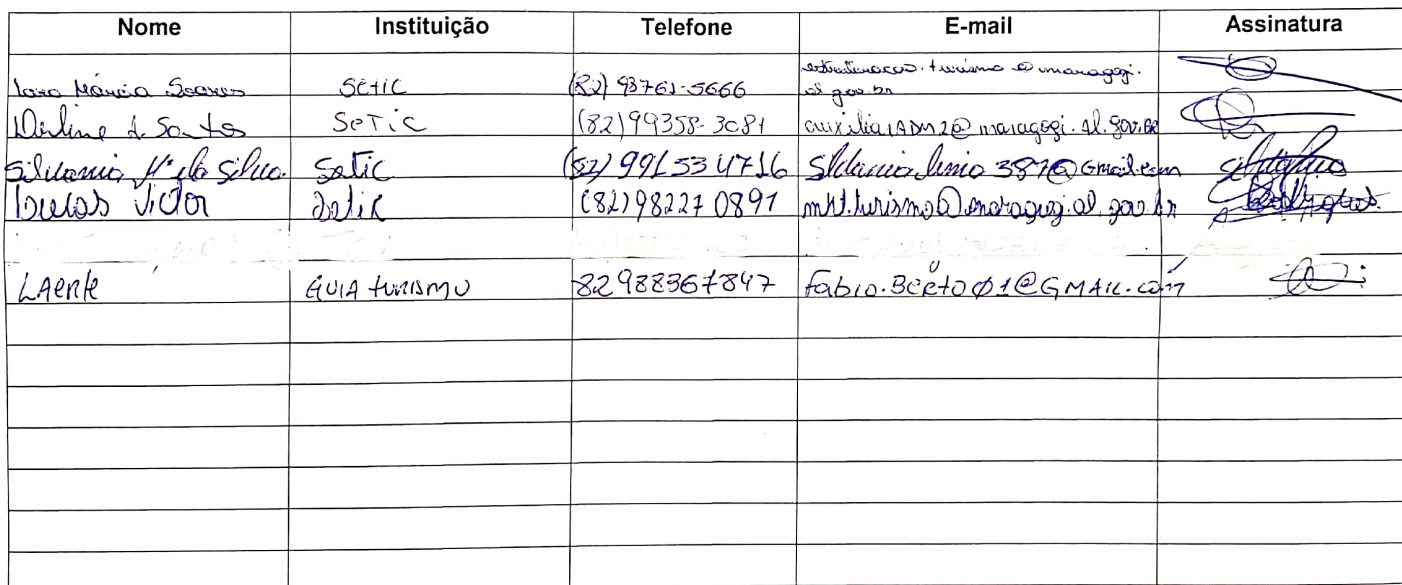 Nome Instituição Telefone E-mail Assinatura
Iara Márcia Soares SETIC (82) 98761-5666 estruturacao.turismo@maragogi.
al.gov.br
Santos SeTic (82)99358-3081 auxiliarADM2@maragogi.Al.gov.BR
Silvania Mª da Silva. Setic (82) 991534716
Lucas Victor Setic (82)98227 0891 mkt.turismo@maragogi.al.gov.br
LAerte GUIA turismo 82988367847 fabio.BERTO01@GMAIL.com